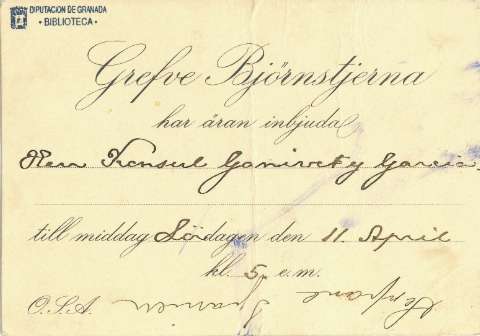 DIPUTACION DE GRANADA
· BIBLIOTECA ·
Grefve Björnstjerna
har äran inbjuda
Herr Konsul Ganivet y Garcia.
till middag Lördagen den 11. April
kl. 5 e.m.
O.S.A.